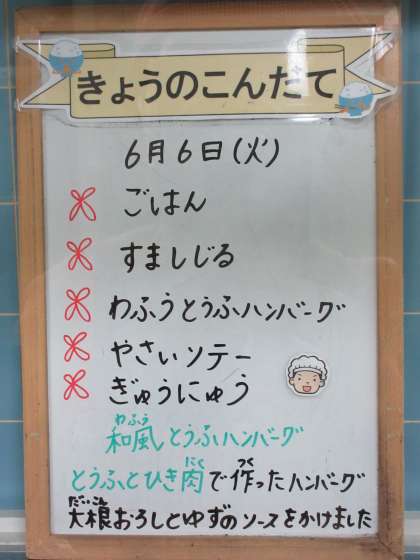 きょうのこんだて
6月6日(火)
ごはん
すましじる
わふうとうふハンバーグ
やさいソテー
ぎゅうにゅう
わふう
和風とうふハンバーグ
にく つく
とうふとひき肉で作ったハンバーグ
だいこん
大根おろしとゆずのソースをかけました